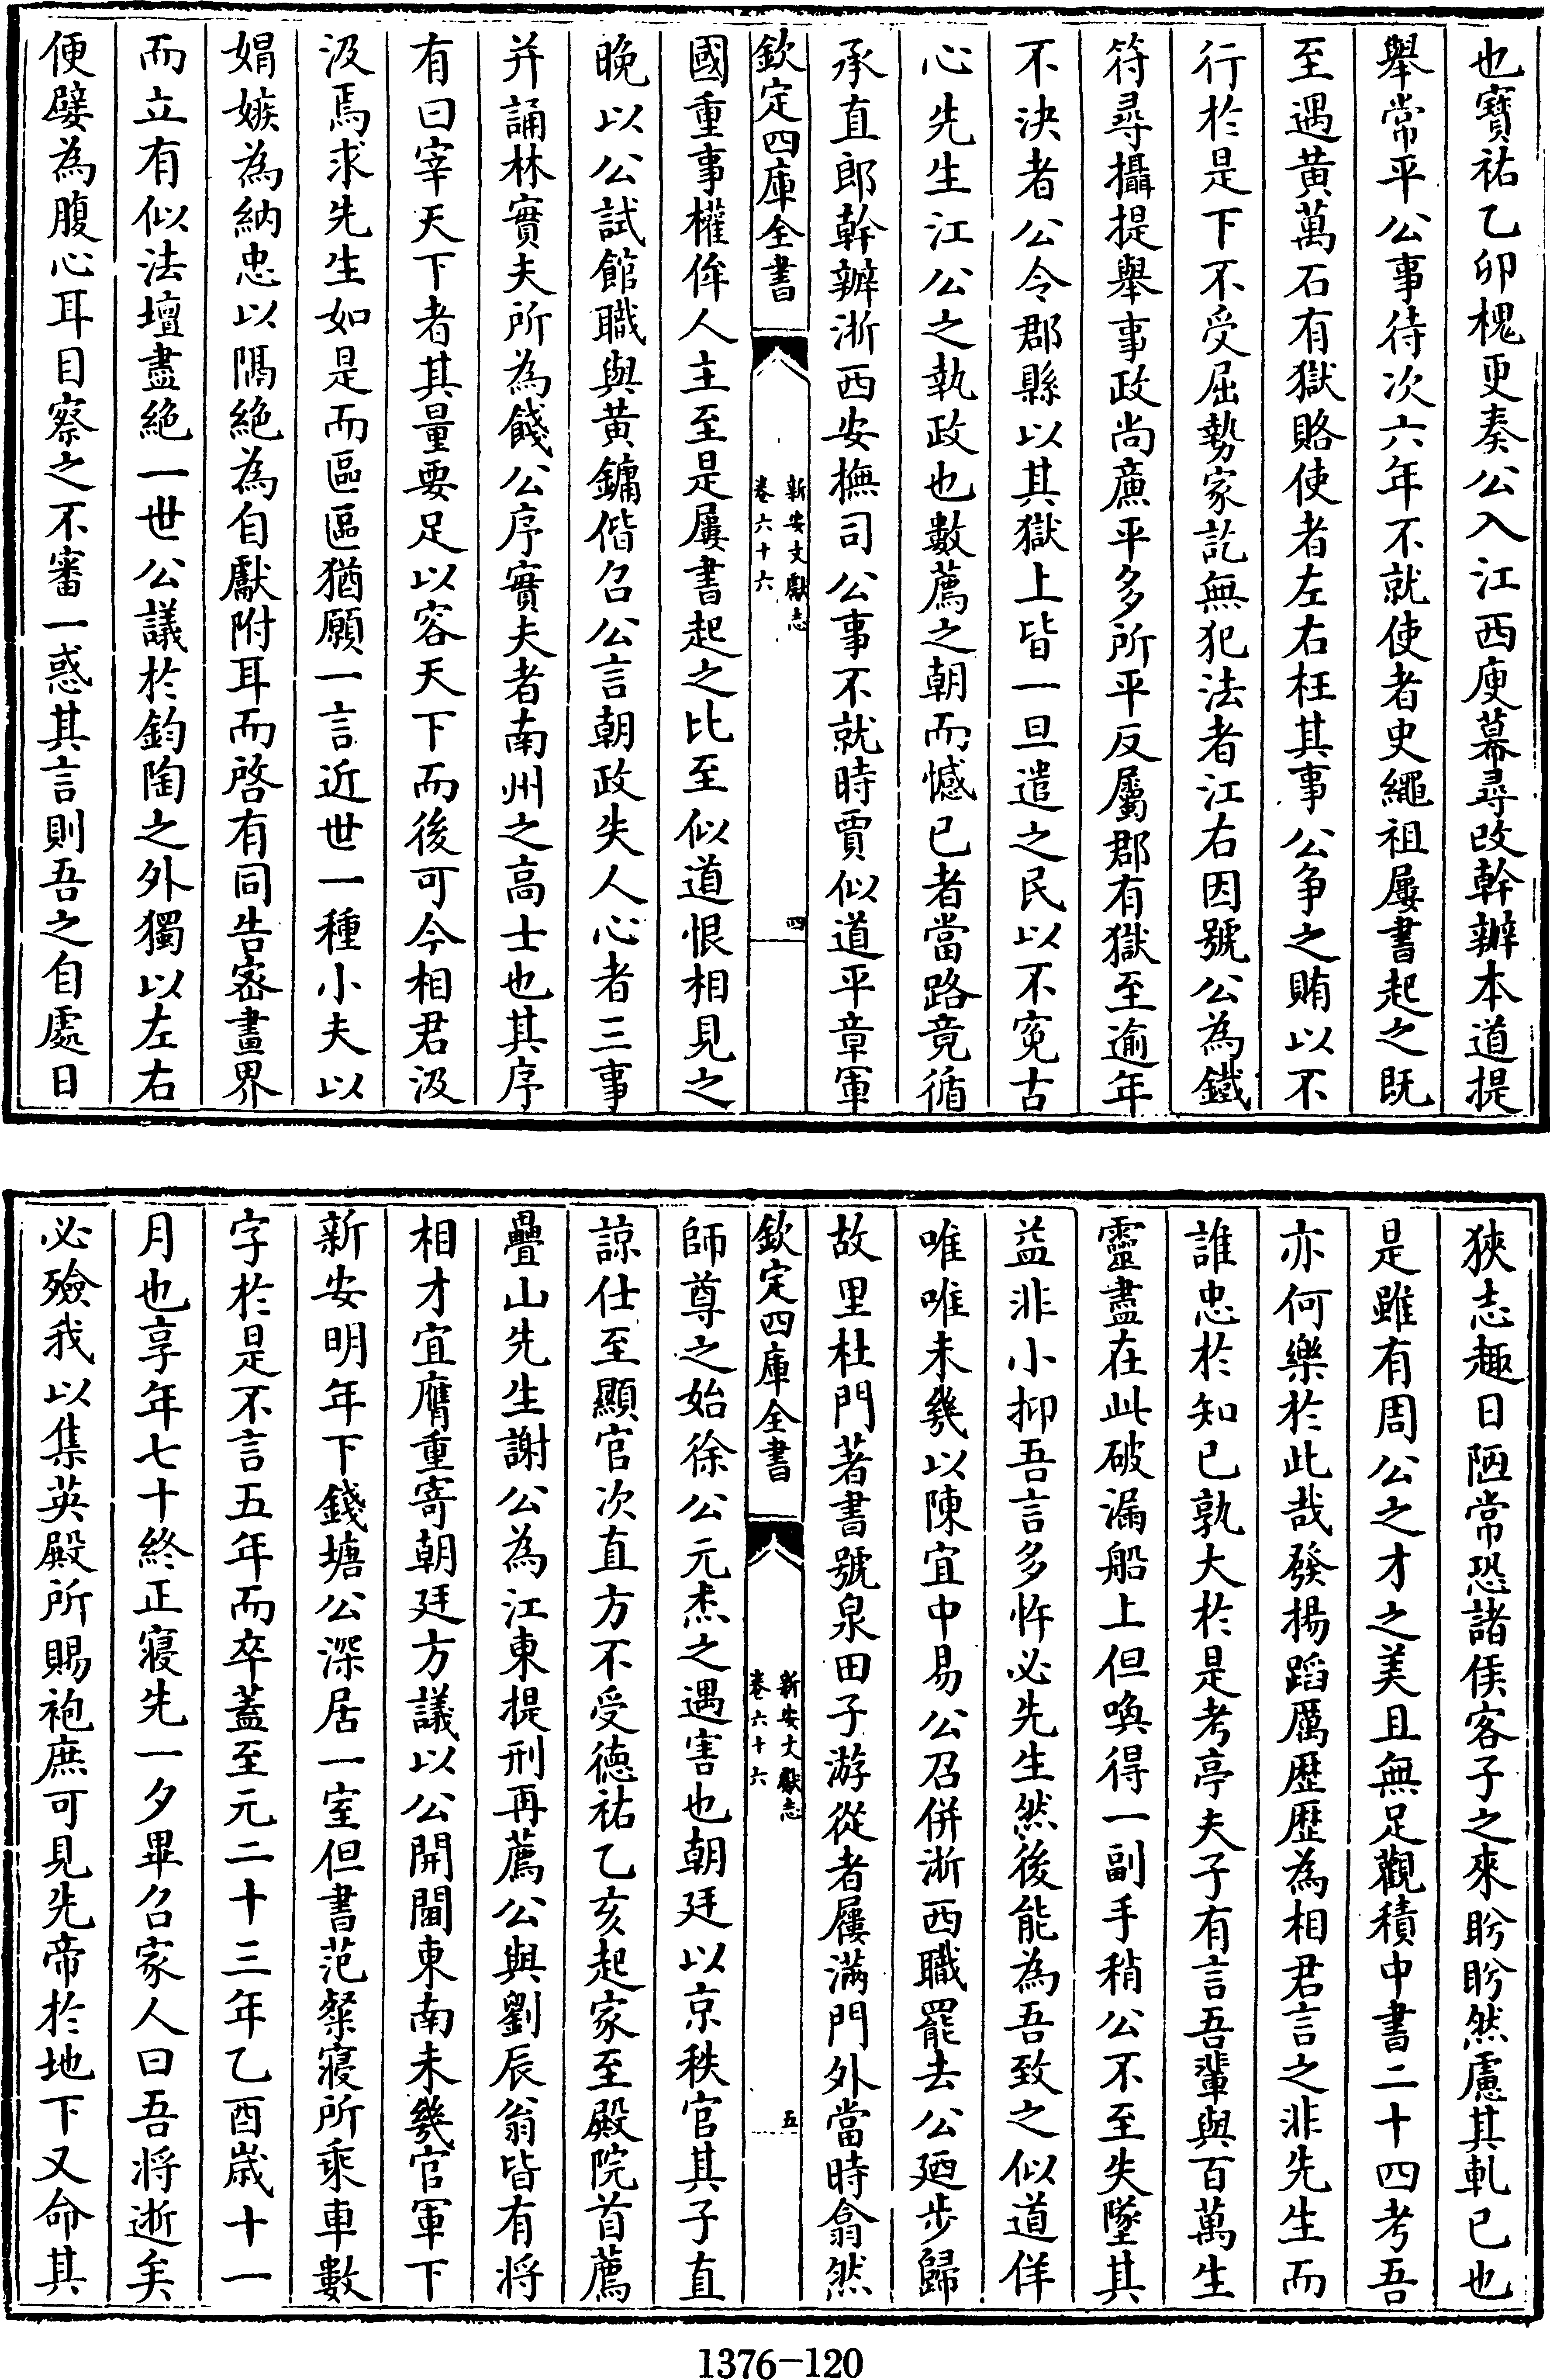 也寳祐乙卯槐更奏公入江西庾幕尋改幹辦本道提
舉常平公事待次六年不就使者史繩祖屢書起之既
至遇黄萬石有獄賂使者左右枉其事公争之賄以不
行於是下不受屈勢家訖無犯法者江右因號公為鐵
符尋攝提舉事政尚亷平多所平反屬郡有獄至逾年
不決者公令郡縣以其獄上皆一旦遣之民以不寃古
心先生江公之執政也數薦之朝而憾已者當路竟循
承直郎幹辦浙西安撫司公事不就時賈似道平章軍
欽定四庫全書
新安文獻志
卷六十六
四
國重事權侔人主至是屢書起之比至似道恨相見之
晚以公試館職與黄鏞偕召公言朝政失人心者三事
并誦林實夫所為餞公序實夫者南州之高士也其序
有曰宰天下者其量要足以容天下而後可今相君汲
汲焉求先生如是而區區猶願一言近世一種小夫以
娟嫉為納忠以隔絶為自獻附耳而啓有同告宻畫界
而立有似法壇盡絶一世公議於鈞陶之外獨以左右
便嬖為腹心耳目察之不審一惑其言則吾之自處日
狹志趣日陋常恐諸侯客子之來盻盻然慮其軋已也
是雖有周公之才之美且無足觀積中書二十四考吾
亦何樂於此哉發揚蹈厲歴歴為相君言之非先生而
誰忠於知已孰大於是考亭夫子有言吾輩與百萬生
靈盡在此破漏船上但喚得一副手稍公不至失墜其
益非小抑吾言多忤必先生然後能為吾致之似道佯
唯唯未幾以陳宜中易公召併浙西職罷去公廼步歸
故里杜門著書號泉田子游從者屨滿門外當時翕然
欽定四庫全書
新安文獻志
卷六十六
五
師尊之始徐公元杰之遇害也朝廷以京秩官其子直
諒仕至顯官次直方不受德祐乙亥起家至殿院首薦
疊山先生謝公為江東提刑再薦公與劉辰翁皆有將
相才宜膺重寄朝廷方議以公開閫東南未幾官軍下
新安明年下錢塘公深居一室但書范粲寢所乘車數
字於是不言五年而卒蓋至元二十三年乙酉嵗十一
月也享年七十終正寢先一夕畢召家人曰吾將逝矣
必殮我以集英殿所賜袍庶可見先帝於地下又命其
1376-120